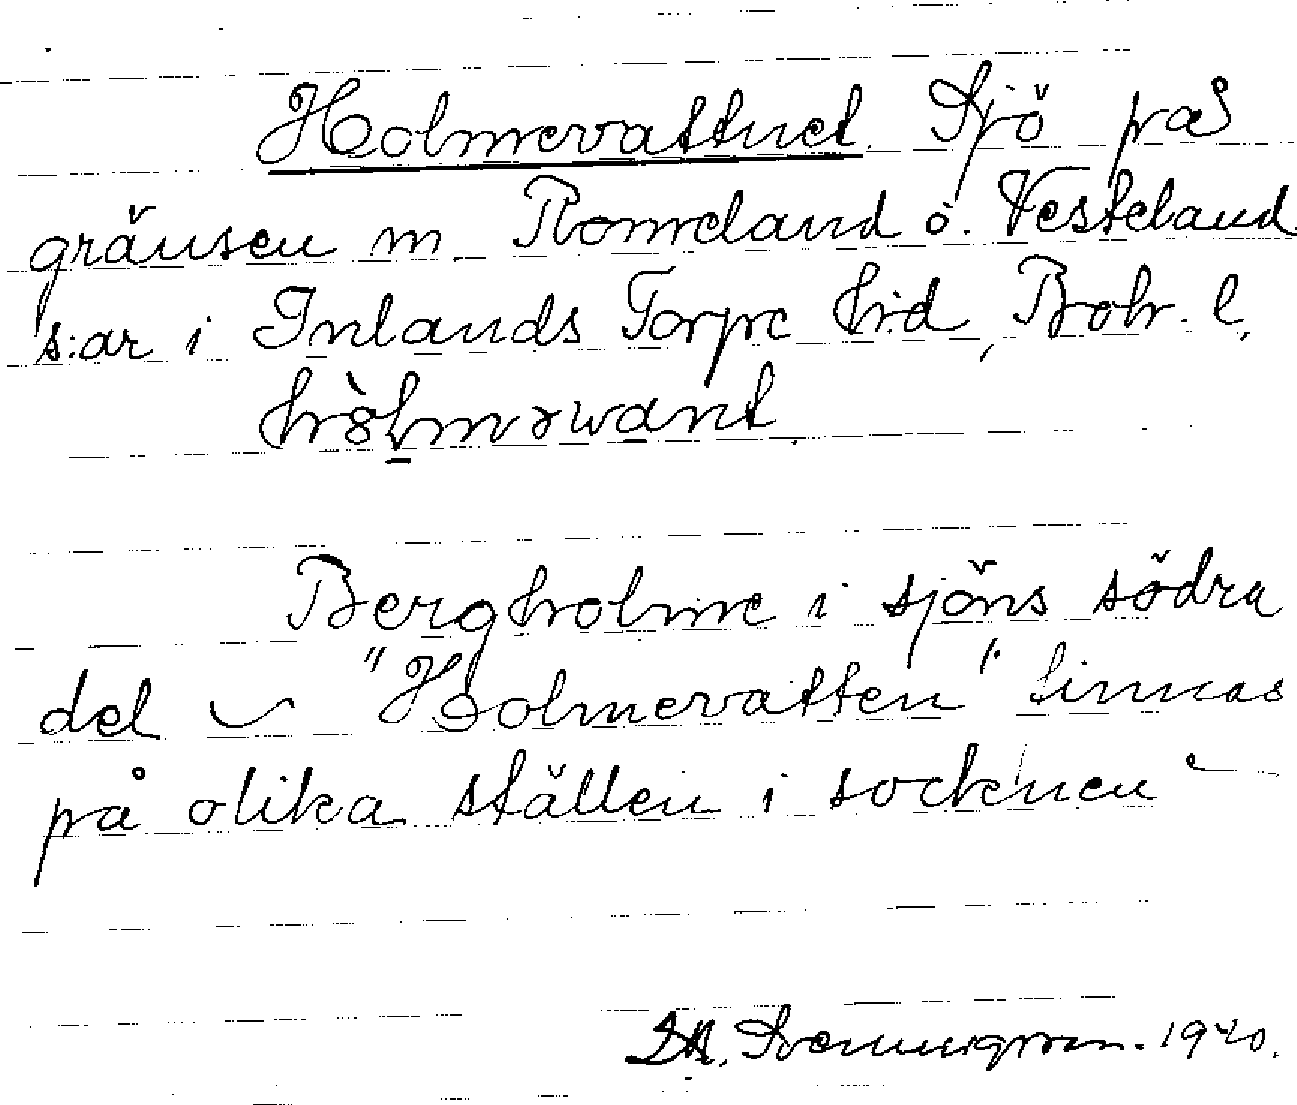 Holmevattnet. Sjö på
gränsen m. Romeland o. Vesteland
s:ar i Inlands Torpe hrd, Boh. l.
Bergholme i sjöns södra
del – "Holmevatten" finnas
på olika ställen i socknen –
1940.